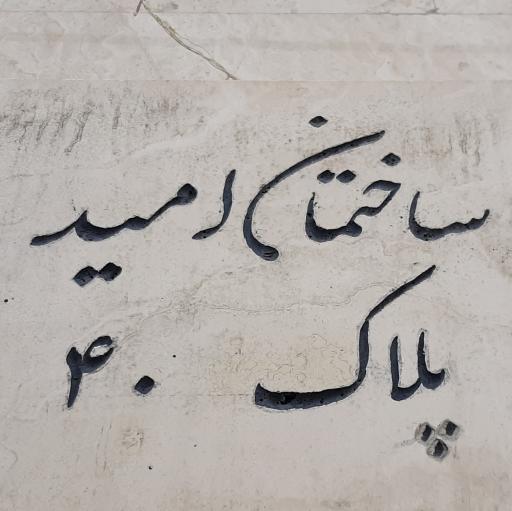 ساختمان امید
پلاک ۴۰